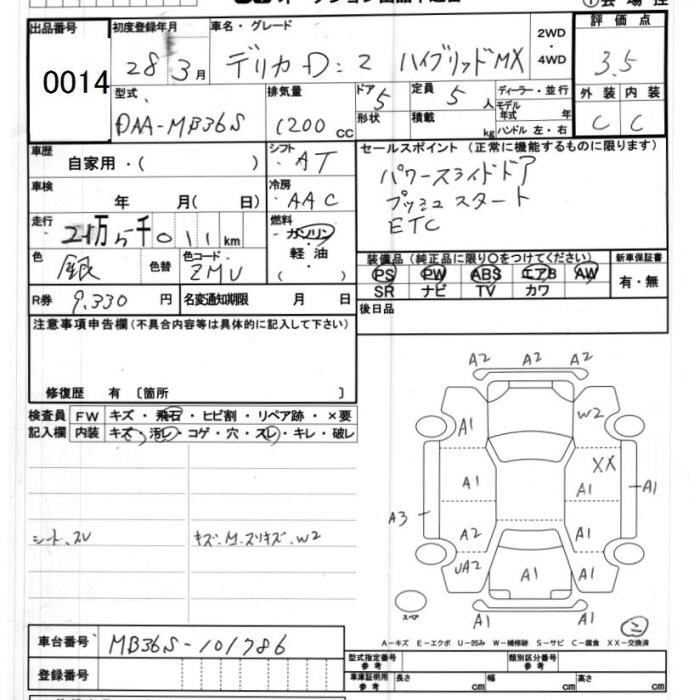 出品番号 0014
初度登録年月 28 3月
車名・グレード デリカD:2 ハイブリッドMX
2WD・4WD
評価点 3.5
型式 DAA-MB36S
排気量 1200 CC
ドア 5
形状
定員 5 人
積載 kg
ディーラー・並行
モデル年式 年
ハンドル 左・右
外装 C
内装 C
車歴 自家用・( )
シフト AT
セールスポイント (正常に機能するものに限ります)
パワースライドドア
プッシュスタート
ETC
車検 年 月( 日)
冷房 AAC
走行 2万5千011km
燃料 ガソリン・軽油・
色 銀 色替
色コード ZMU
装備品 (純正品に限り○をつけてください)
PS PW ABS エアB AW
SR ナビ TV カワ
新車保証書 有・無
R券 9,330 円
名変通知期限 月 日
後日品
注意事項申告欄(不具合内容等は具体的に記入して下さい)
修復歴 有 〔箇所 〕
検査員記入欄
FW キズ・飛石・ヒビ割・リペア跡・×要
内装 キズ・汚レ・コゲ・穴・スレ・キレ・破レ
シート、スレ
キズ、M.スリキズ、W2
A2 A2 A2
A1 W2
A1 XX A1 A1
A3 A2 A1
UA2 A1 A1
A1 A1
スペア
A-キズ E-エクボ U-凹み W-補修跡 S-サビ C-腐食 XX-交換済
車台番号 MB36S-101786
登録番号
型式指定番号 参考
類別区分番号 参考
車庫証明用 参考 長さ cm 幅 cm 高さ cm